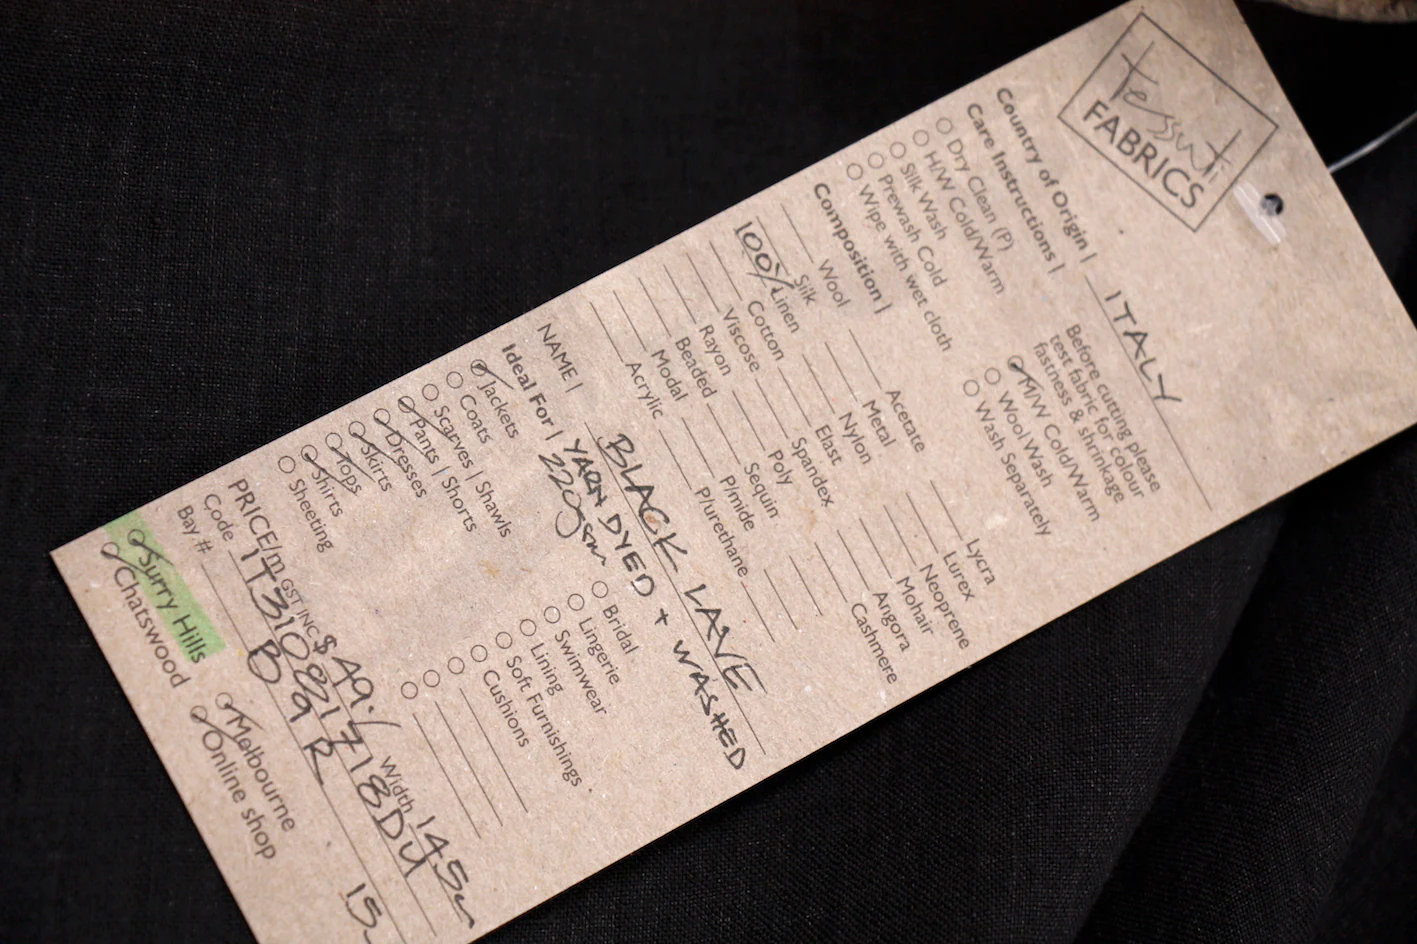 tessuti
FABRICS
Country of Origin | ITALY
Care Instructions |
Before cutting please
test fabric for colour
fastness & shrinkage
Dry Clean (P)
M/W Cold/Warm
H/W Cold/Warm
Wool Wash
Silk Wash
Wash Separately
Prewash Cold
Wipe with wet cloth
Composition |
Wool Acetate Lycra
Silk Metal Lurex
100% Linen Nylon Neoprene
Cotton Elast Mohair
Viscose Spandex Angora
Rayon Poly Cashmere
Beaded Sequin
Modal P/mide
Acrylic P/urethane
NAME | BLACK LAVE
YARN DYED + WASHED
Ideal For | 220gsm
Jackets Bridal
Coats Lingerie
Scarves | Shawls Swimwear
Pants | Shorts Lining
Dresses Soft Furnishings
Skirts Cushions
Tops
Shirts
Sheeting
PRICE/m GST INC $ 49./ Width 145cm
Code
Bay #
Surry Hills Melbourne
Chatswood Online shop